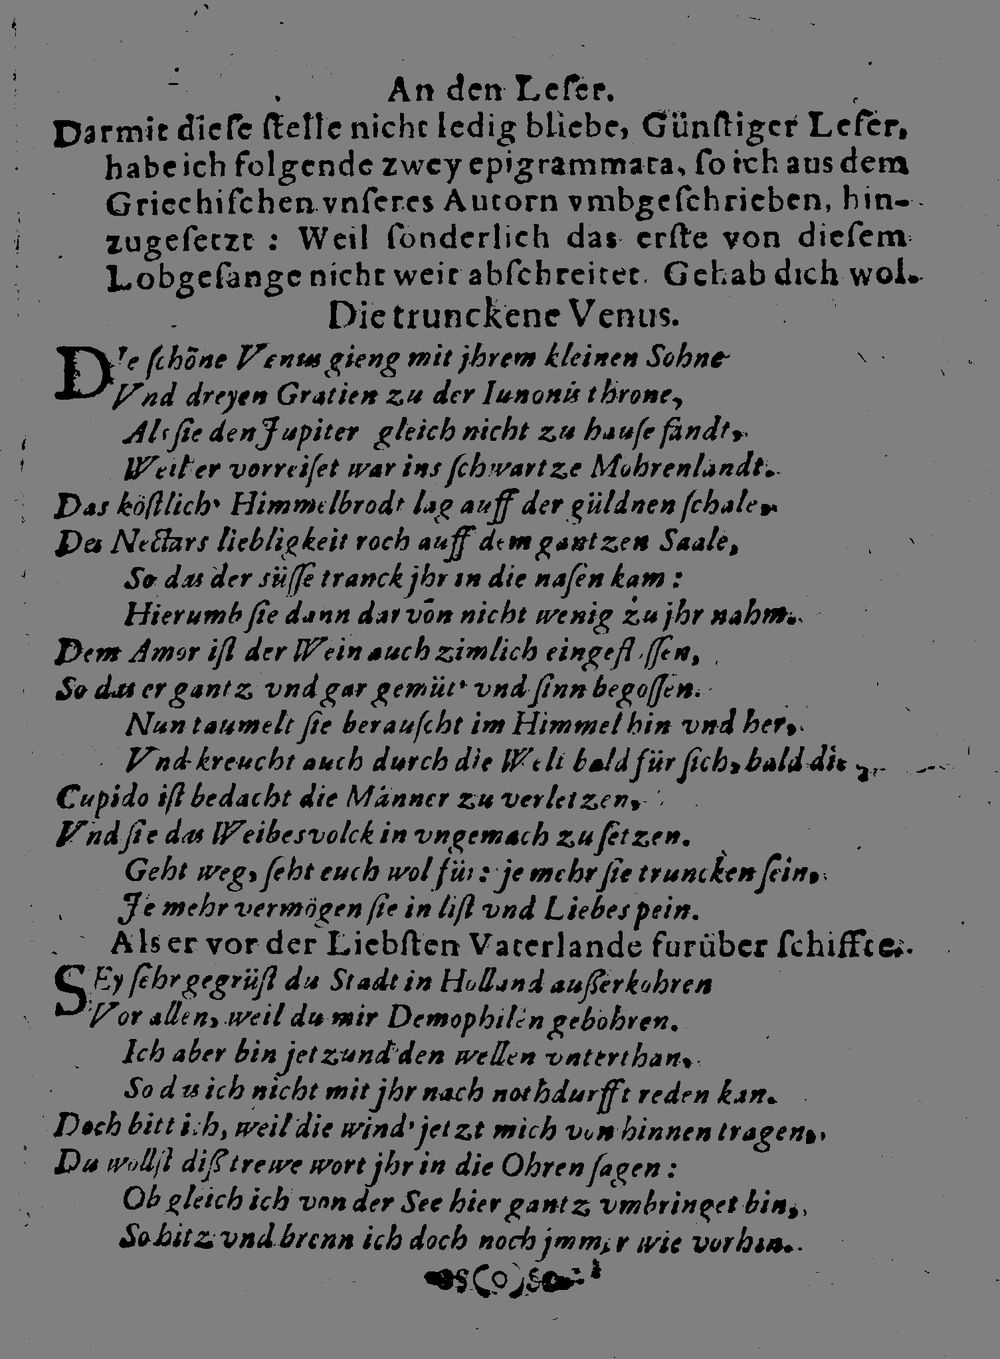 An den Leſer.
Darmit dieſe ſtelle nicht ledig bliebe, Günſtiger Leſer,
habe ich folgende zwey epigrammata, ſo ich aus dem
Griechiſchen vnſeres Autorn vmbgeſchrieben, hin-
zugeſetzt : Weil ſonderlich das erſte von dieſem
Lobgeſange nicht weit abſchreitet. Gehab dich wol.
Die trunckene Venus.
DIe ſchöne Venus gieng mit jhrem kleinen Sohne
Vnd dreyen Gratien zu der Iunonis throne,
Als ſie den Jupiter gleich nicht zu hauſe fandt,
Weil er vorreiſet war ins ſchwartze Mohrenlandt.
Das köſtlich' Himmelbrodt lag auff der güldnen ſchale,
Des Nectars liebligkeit roch auff dem gantzen Saale,
So das der süſſe tranck jhr in die naſen kam :
Hierumb ſie dann darvōn nicht wenig zu jhr nahm.
Dem Amor iſt der Wein auch zimlich eingefloſſen,
So das er gantz vnd gar gemüt' vnd ſinn begoſſen.
Nun taumelt ſie berauſcht im Himmel hin vnd her,
Vnd kreucht auch durch die Welt bald für ſich, bald die
Cupido iſt bedacht die Männer zu verletzen,
Vnd ſie das Weibesvolck in vngemach zu ſetzen.
Geht weg, ſeht euch wol für: je mehr ſie truncken ſein,
Je mehr vermögen ſie in liſt vnd Liebespein.
Als er vor der Liebſten Vaterlande furüber ſchiffte.
SEy ſehr gegrüſt du Stadt in Holland außerkohren
Vor allen, weil du mir Demophilen gebohren.
Ich aber bin jetzund den wellen vnterthan,
So das ich nicht mit jhr nach nothdurfft reden kan.
Doch bitt ich, weil die wind' jetzt mich von hinnen tragen,
Du wollſt diß trewe wort jhr in die Ohren ſagen :
Ob gleich ich von der See hier gantz vmbringet bin,
So hitz vnd brenn ich doch noch jmmer wie vorhin.